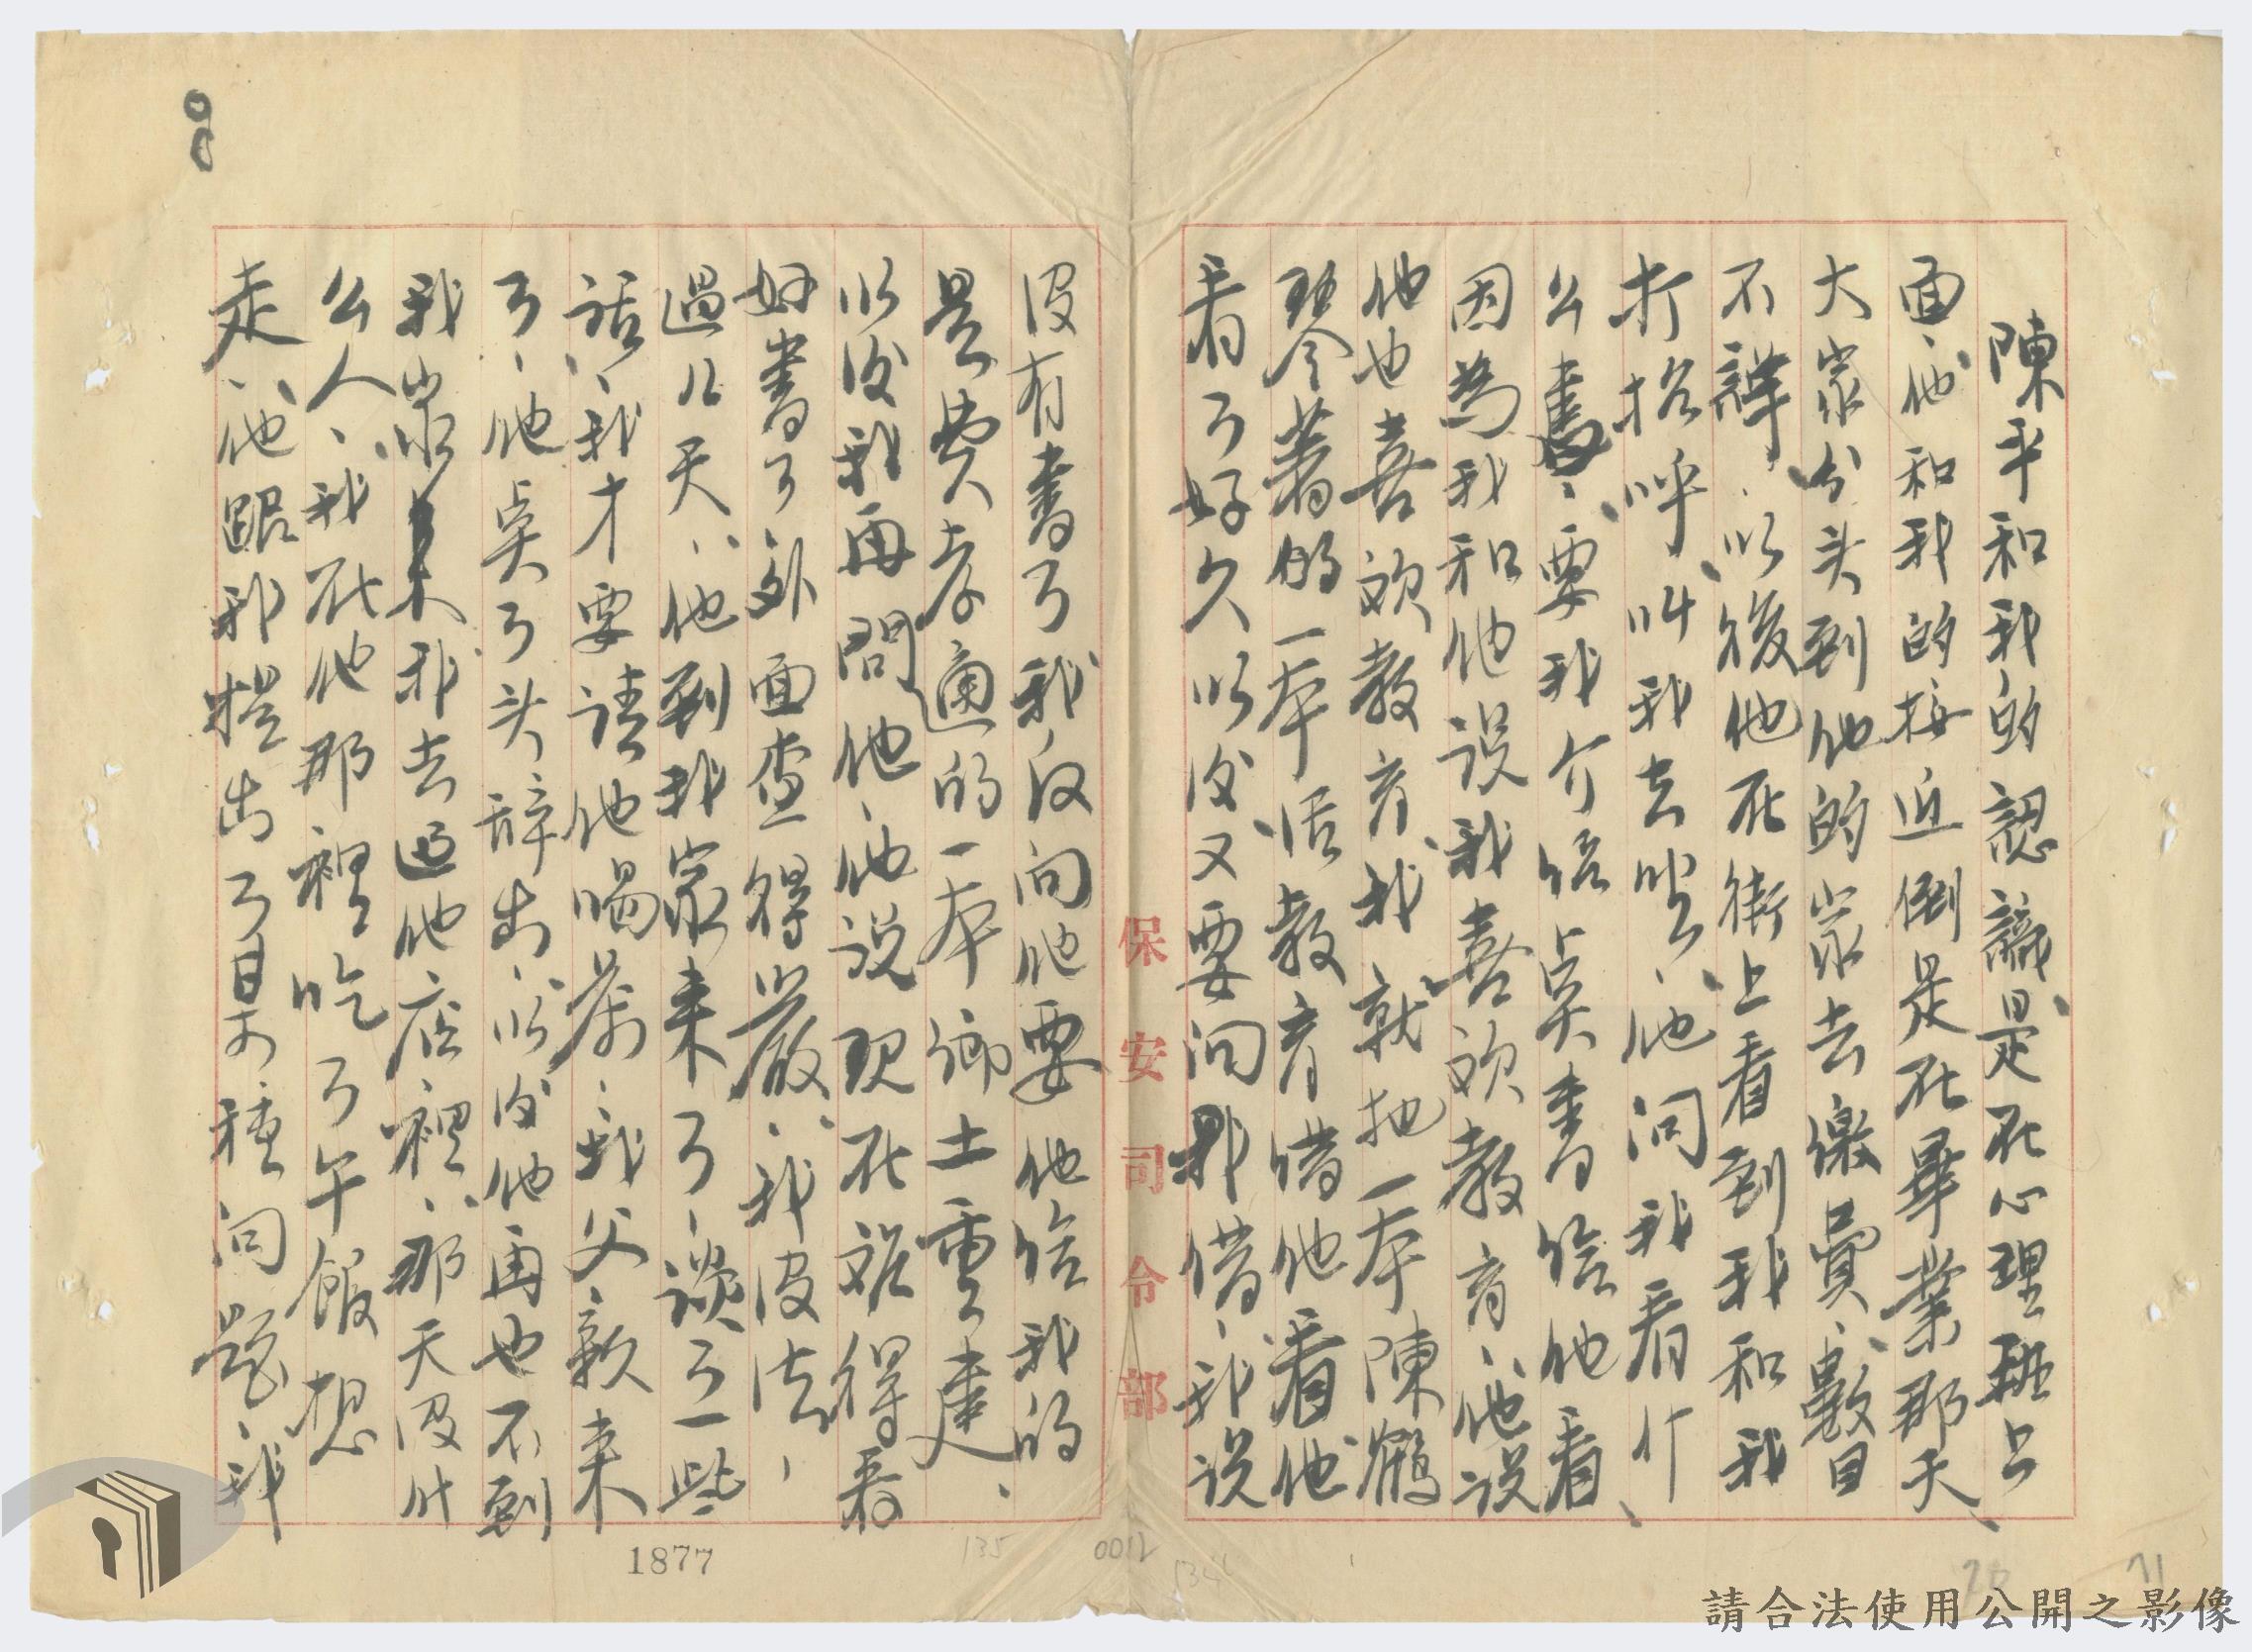 陳平和我的認識、是在心理班上
面、他和我的接近倒是在畢業那天、
大家分头到他的家去繳費、數目
不詳、以後他在街上看到我和我
打招呼、叫我去坐、他问我看什
么書、要我介绍点書给他看、
因為我和他说我喜欢教育、他说
他也喜欢教育、我就把一本陳鶴
琴著的一本活教育借他看、他
看了好久以后又要向我借、我说
没有書了、我反向他要、他给我的
是費孝通的一本鄉土重建、
以後我再問他、他说现在难得看
好書了、外面查得嚴、我没法、
過几天、他到我家来了、谈了一些
话、我才要请他喝茶、我父親来
了、他点了头辞出、以後他再也不到
我家来、我去過他店裡、那天没什
么人、我在他那裡吃了午飯想
走、他跟我提出了 种问题、我
保安司令部
1877
135
0012
請合法使用公開之影像